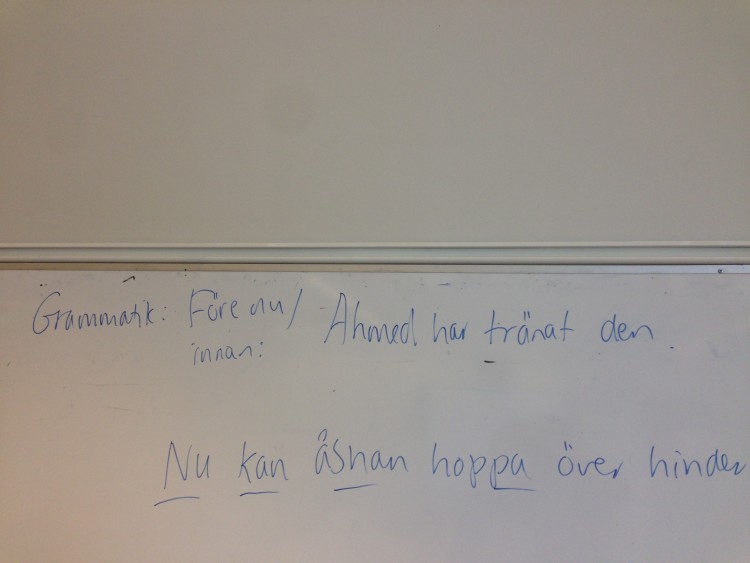 Grammatik: Före nu/ Ahmed har tränat den.
innan:
Nu kan åsnan hoppa över hinder